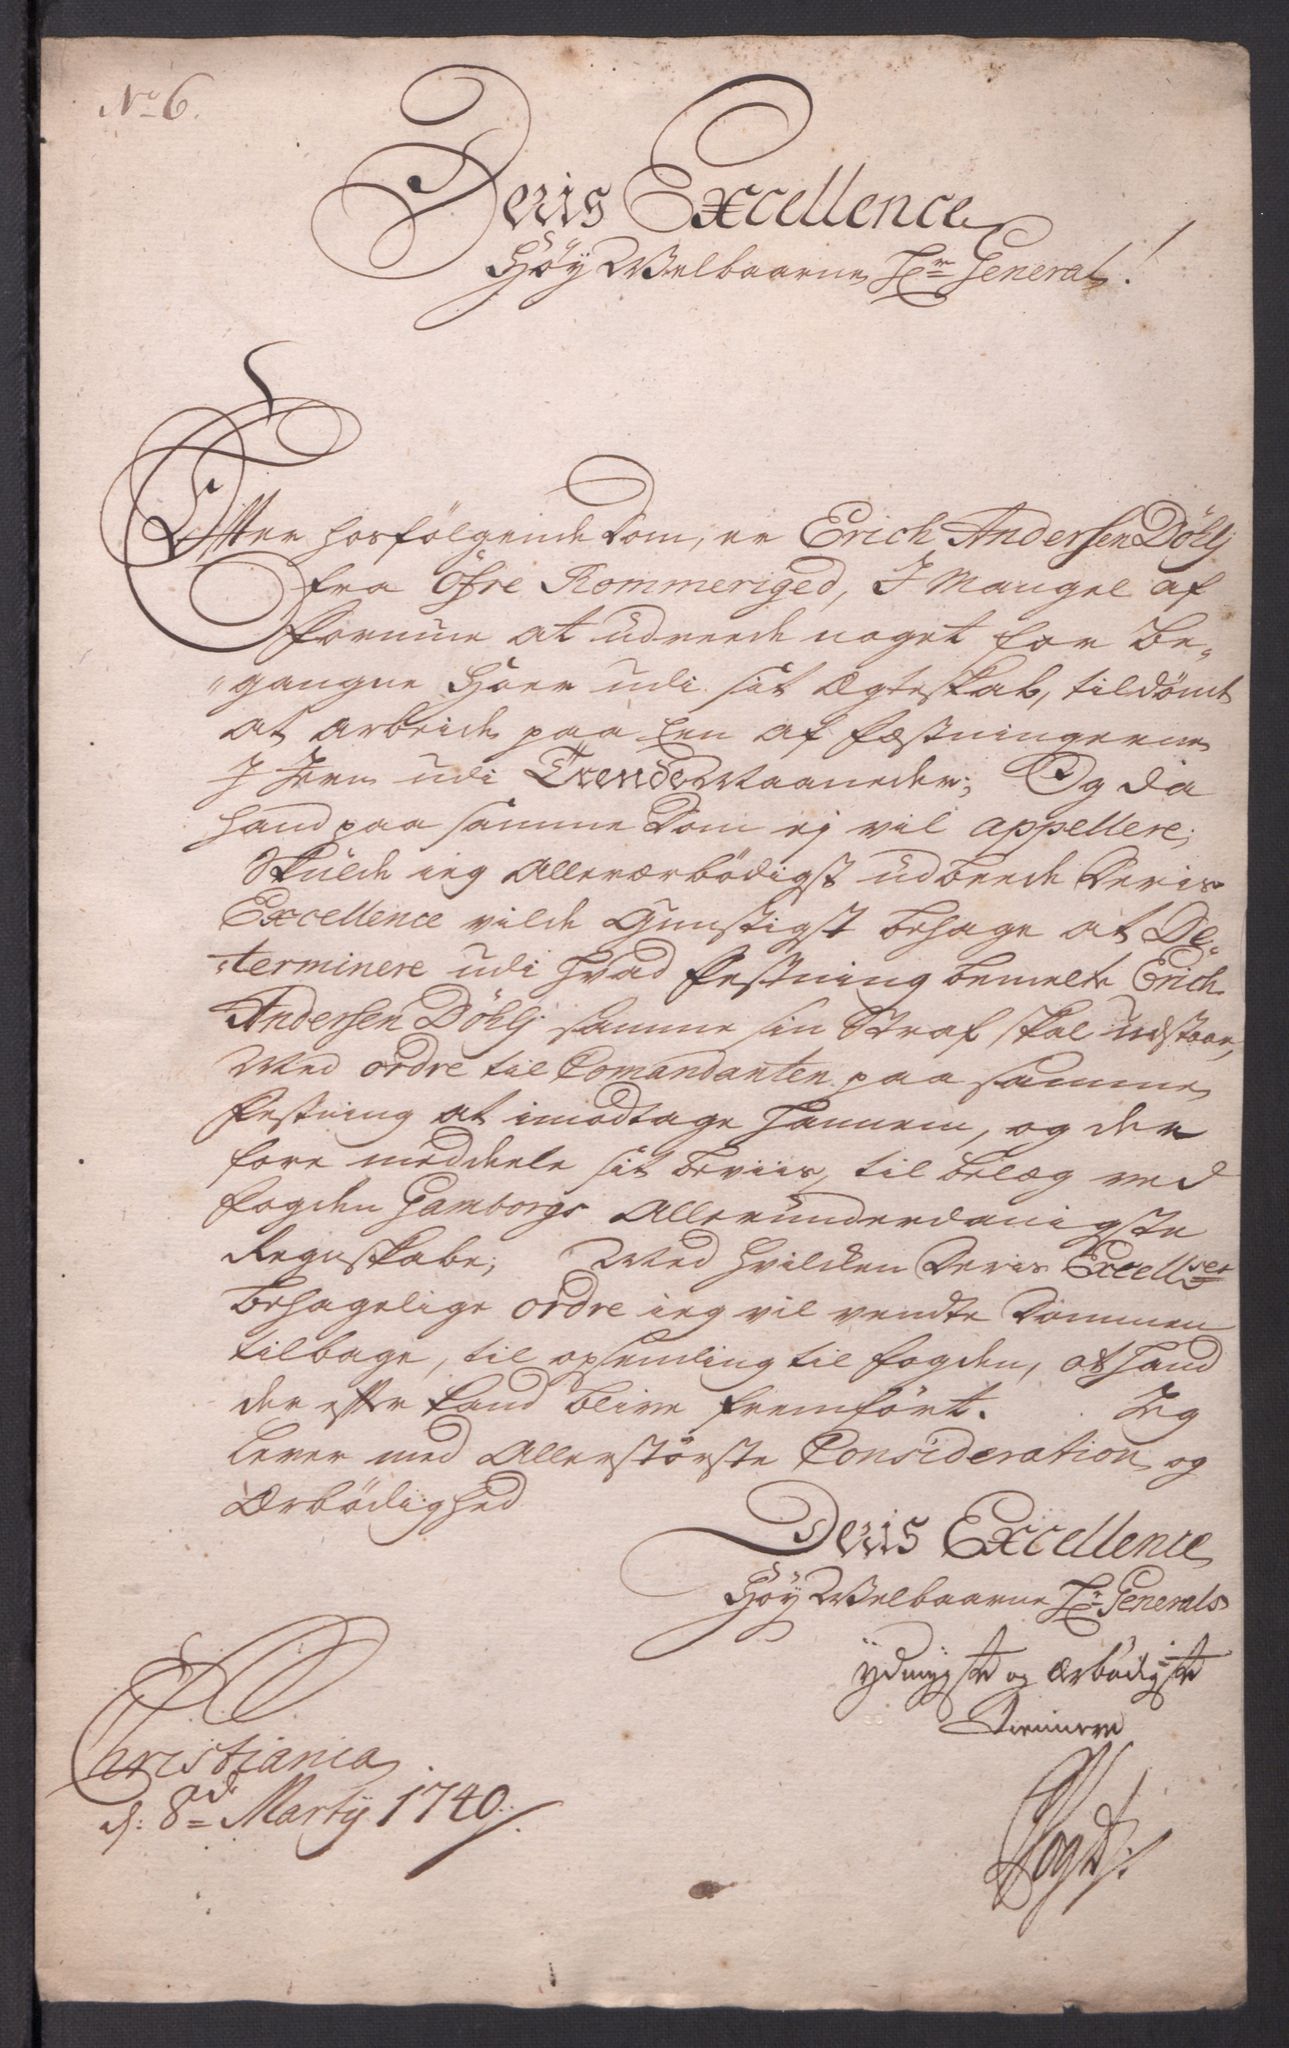 No 6.
Deris Excellence
Høy Welbaarne Hr General!
Efter hosfølgende Dom, er Erich Andersen Döhlj
fra Öfre Rommeriged, J Mangel af
formue at udreede noget for be-
gangne Hoer udi sit Ægteskab, tildömt
at arbeide paa een af fæstningerne
J Jern udi Trende Maaneder; Og da
hand paa samme Dom ej vil appellere;
Skulde ieg Allerærbödigst udbeede Deris
Excellence vilde Gunstigst behage at De-
terminere udi hvad festning bemelte Erich
Andersen Döhlj samme sin Straf skal udstaae,
Med ordre til Comandanten paa samme
festning at imodtage hannem, og der
fore meddeele sit beviis, til belæg ved
fogden Gamborgs Allerunderdanigste
Regnskabe; Med hvilcken Deris Excellces
behagelige ordre ieg vil vendte Dommen
tilbage, til opsending til fogden, at hand
der efter kand blive fremfört. Jeg
lever med Allerstörste Consideration og
Ærbödighed
Deris Excellence
Høy Welbaarne Hr Generals
ÿdmygste og ærbödigste
Tienere
Christiania
d: 8de Martij 1740.
Vogt.